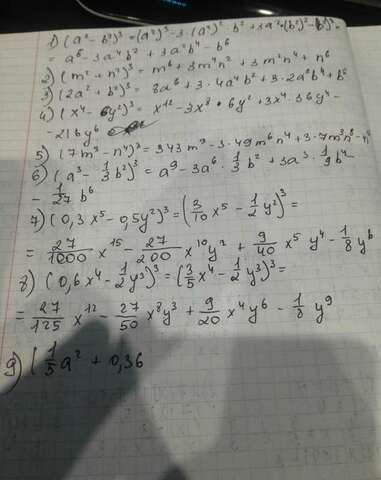 1) (a² - b²)³ = (a²)³ - 3·(a²)²·b² + 3a²·(b²)² - (b²)³ =
= a⁶ - 3a⁴b² + 3a²b⁴ - b⁶
2) (m² + n²)³ = m⁶ + 3m⁴n² + 3m²n⁴ + n⁶
3) (2a² + b²)³ = 8a⁶ + 3·4a⁴b² + 3·2a²b⁴ + b⁶
4) (x⁴ - 6y²)³ = x¹² - 3x⁸·6y² + 3x⁴·36y⁴ -
- 216y⁶
5) (7m³ - n⁴)³ = 343m⁹ - 3·49m⁶n⁴ + 3·7m³n⁸ - n
6) (a³ - 1/3 b²)³ = a⁹ - 3a⁶·1/3 b² + 3a³·1/9 b⁴ -
- 1/27 b⁶
7) (0,3x⁵ - 0,5y²)³ = (3/10 x⁵ - 1/2 y²)³ =
= 27/1000 x¹⁵ - 27/200 x¹⁰y² + 9/40 x⁵y⁴ - 1/8 y⁶
8) (0,6x⁴ - 1/2 y³)³ = (3/5 x⁴ - 1/2 y³)³ =
= 27/125 x¹² - 27/50 x⁸y³ + 9/20 x⁴y⁶ - 1/8 y⁹
9) (1/5 a² + 0,36